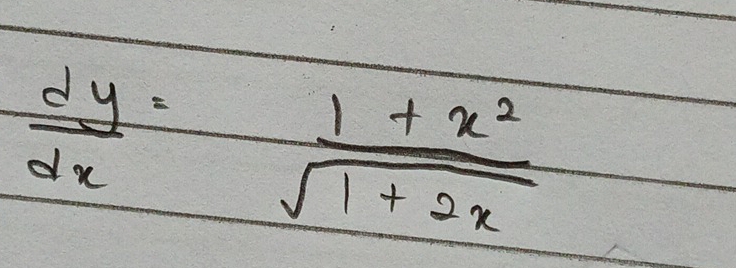 dy/dx = (1 + x²)/√(1 + 2x)